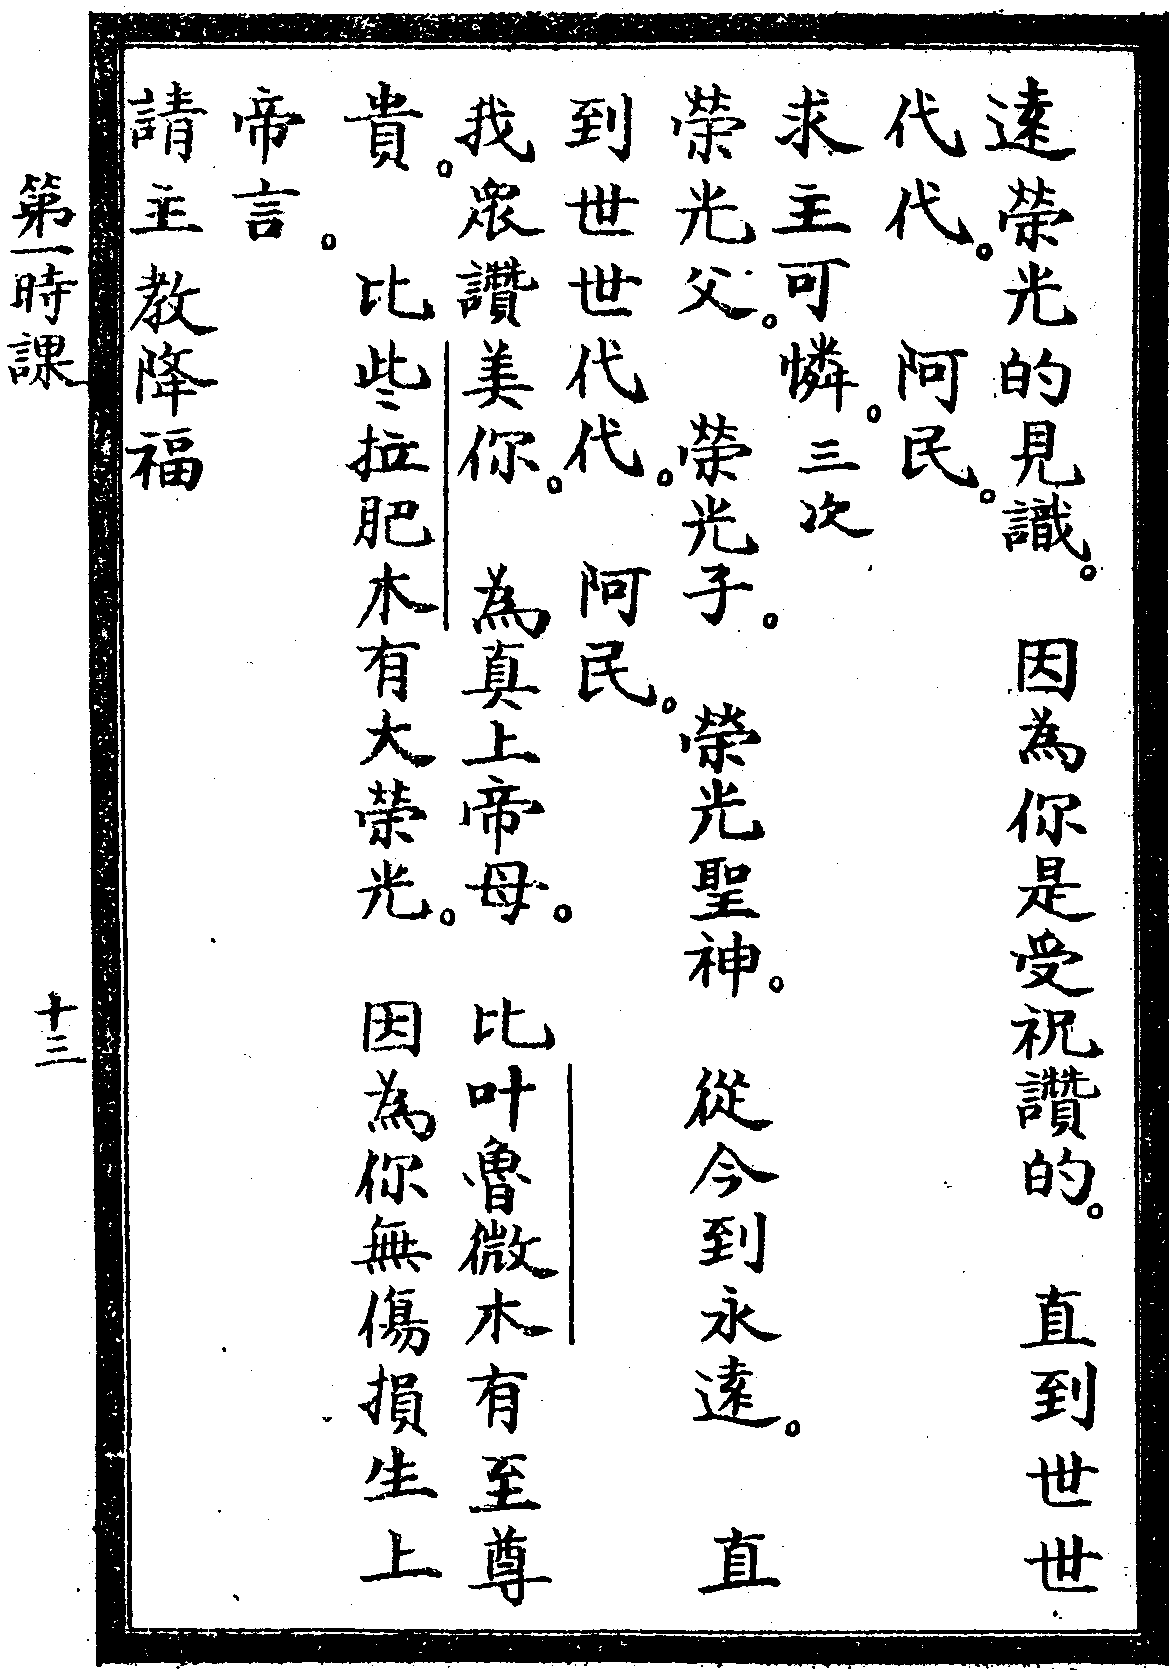 遠榮光的見識。因為你是受祝讚的。直到世世
代代。阿民。
求主可憐。三次
榮光父。榮光子。榮光聖神。從今到永遠。直
到世世代代。阿民。
我衆讚美你。為真上帝母。比叶魯微木有至尊
貴。比些拉肥木有大榮光。因為你無傷損生上
帝言。
請主教降福
第一時課
十三